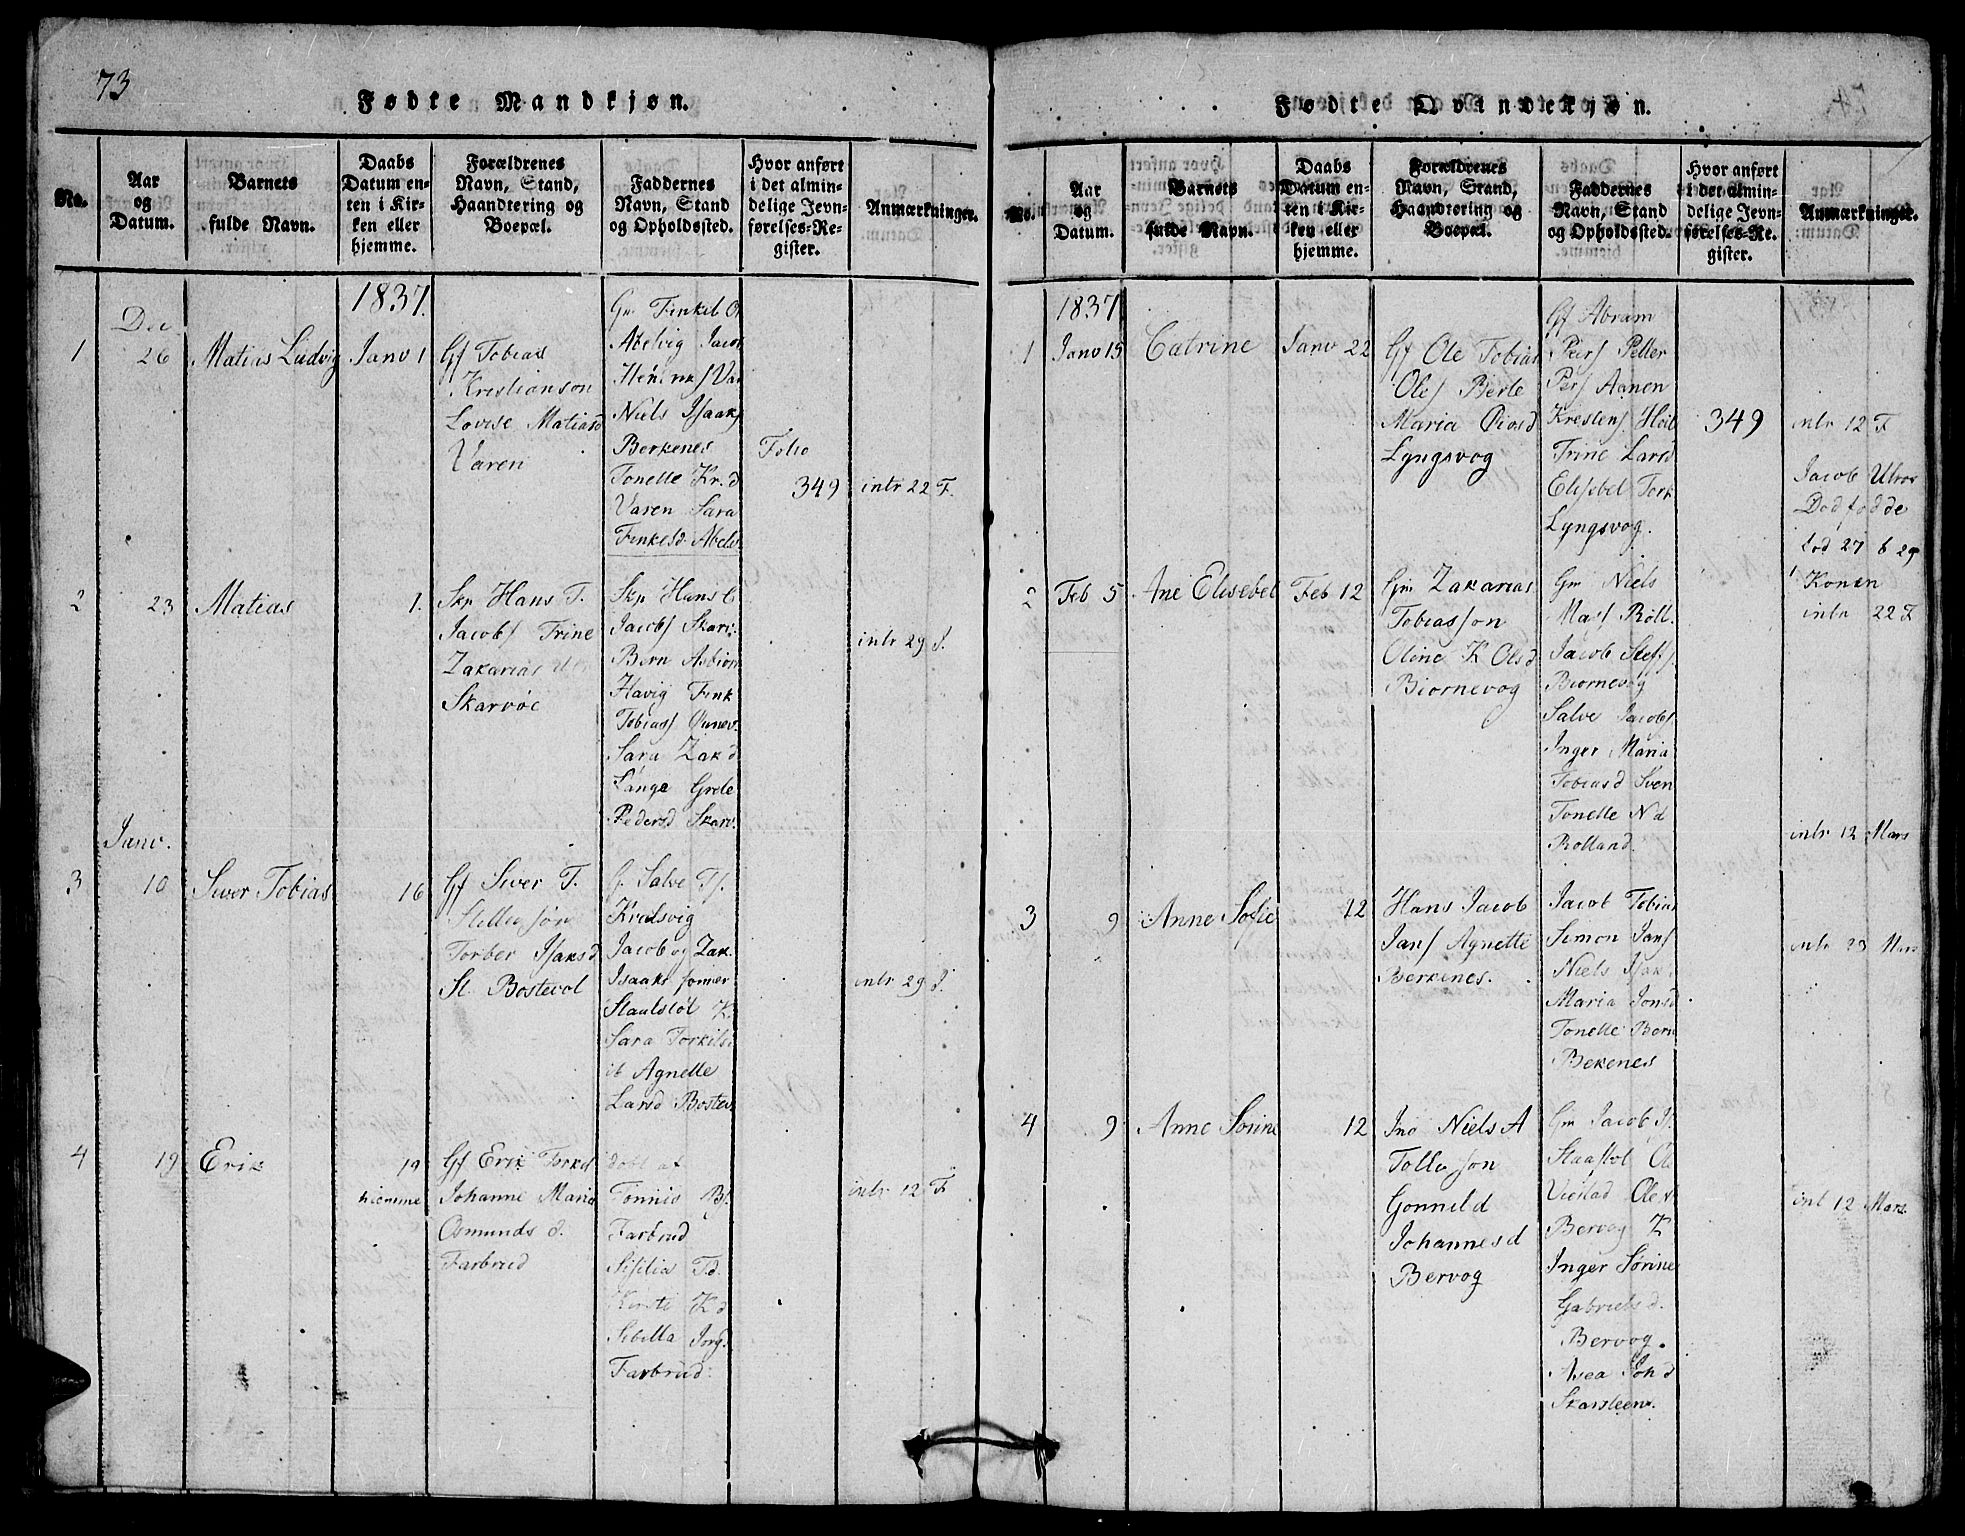 73
Fødte Mandkjøn.
No.
Aar
og
Datum.
Barnets
fulde Navn.
Daabs
Datum en-
ten i Kir-
ken eller
hjemme.
Forældrenes
Navn, Stand,
Haandtering og
Boepæl.
Faddernes
Navn, Stand
og Opholdssted.
Hvor anført
i det almin-
delige Jevn-
førelses-Re-
gister.
Anmærkninger.
1837.
Dec
1
26
Matias Ludvig
Janv 1
Gf Tobias
Kristianson
Lovise Matiasd
Varen
Gm Finkel O
Abelvig Jacob
Henriks Var
Niels Isaaks
Berkenes
Tonette Kr.d
Varen Sara
Finkelsd Abelv
Folio
349
intr 22 F.
2
23
Matias
1.
Skp Hans T.
Jacobs Trine
Zakarias
Skarvøe
Skp Hans C
Jacobs Skarv.
Bern Asbiorn
Havig Fink
Tobias
Sara Zakd
Lange Grete
Pedersd Skarv.
intr 29 J.
Janv.
3
10
Siver Tobias
16
Gf Siver T.
Stillufsön
Torber Isaksd
St. Bostevol
G. Salve Ts.
Kreilsvig
Jacob og Zak.
Isaaks sonner
Staalstöl K.
Sara Torkilsd
ib Agnette
Larsd Bostev
intr 29 J.
4
19
Erik
19
hiemme
Gf Erik Torkel
Johanne Maria
Osmunds d.
Farbrud
dobt af
Tonnis Bs.
Farbrud
Sisilia Td.
Kirsti K d
Sibilla Jorg
Farbrud.
intr 12 F
Fødte Qvindekjøn.
No.
Aar
og
Datum.
Barnets
fulde Navn.
Daabs
Datum en-
ten i Kir-
ken eller
hjemme.
Forældrenes
Navn, Stand,
Haandtering og
Boepæl.
Faddernes
Navn, Stand
og Opholdssted.
Hvor anført
i det almin-
delige Jevn-
førelses-Re-
gister.
Anmærkninger.
1837
1
Janv 15
Catrine
Janv 22
Gf Ole Tobias
Oles Berte
Maria Piosd
Lyngsvog
Gf Abram
Pers Petter
Pers Aanen
Krestens Heil
Trine Larsd
Elisebet Tork
Lyngsvog.
349
intr 12 F
Jacob
Dodfodde
fod 27 b 29
Konen
intr 22 F
2
Feb 5
Ane Elisebet
Feb 12
Gm Zakarias
Tobiasson
Oline K Olsd
Biornevog
Gm Niels
Mas Roll.
Jacob Steffs.
Biornevog
Salve Jacobs
Inger Maria
Tobiasd Sven
Tonette N d
Rolland.
intr 12 Mars
3
9
Anne Sofie
12
Hans Jacob
Jans Agnette
Berkenes.
Jacob Tobias
Simon Jans
Niels Isak
Maria Jonsd
Tonette Bern
Bekenes
intr 29 Mars
4
9
Anne Sorine
12
Ino Niels A
Tollufson
Gonnild
Johannesd
Bervog
Gm Jacob
Staastol Ole
Vigstad Ole
Bervog K
Inger Sörine
Gabrielsd.
Bervog.
Asea Jon d
Skarsteen.
int 12 Mars